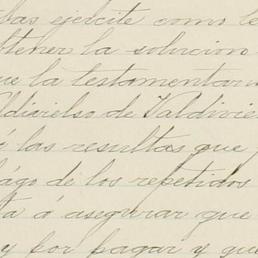 bas ejercite como le
btener la solucion
ue la testamentar
ldivielso de Valdivie
á las resultas que
págo de los repetidos
ta á asegurar que
y por pagar y que